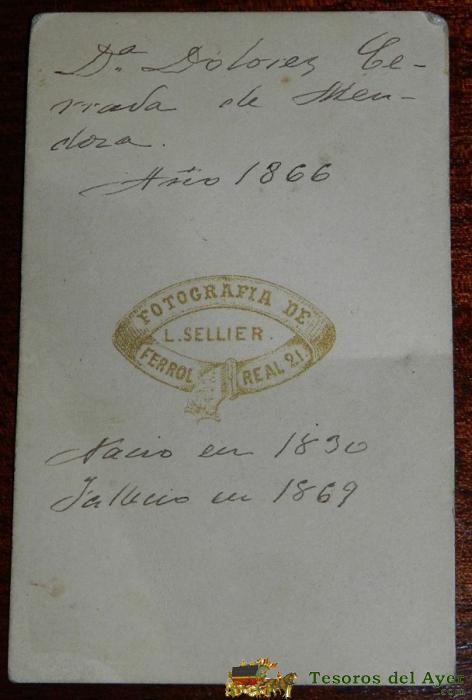 Dª Dolores Ce-
rrada de Men-
doza.
Año 1866
FOTOGRAFIA DE
L. SELLIER.
FERROL REAL 21.
Nacio en 1830
Fallecio en 1869
Tesoros del Ayer
.com